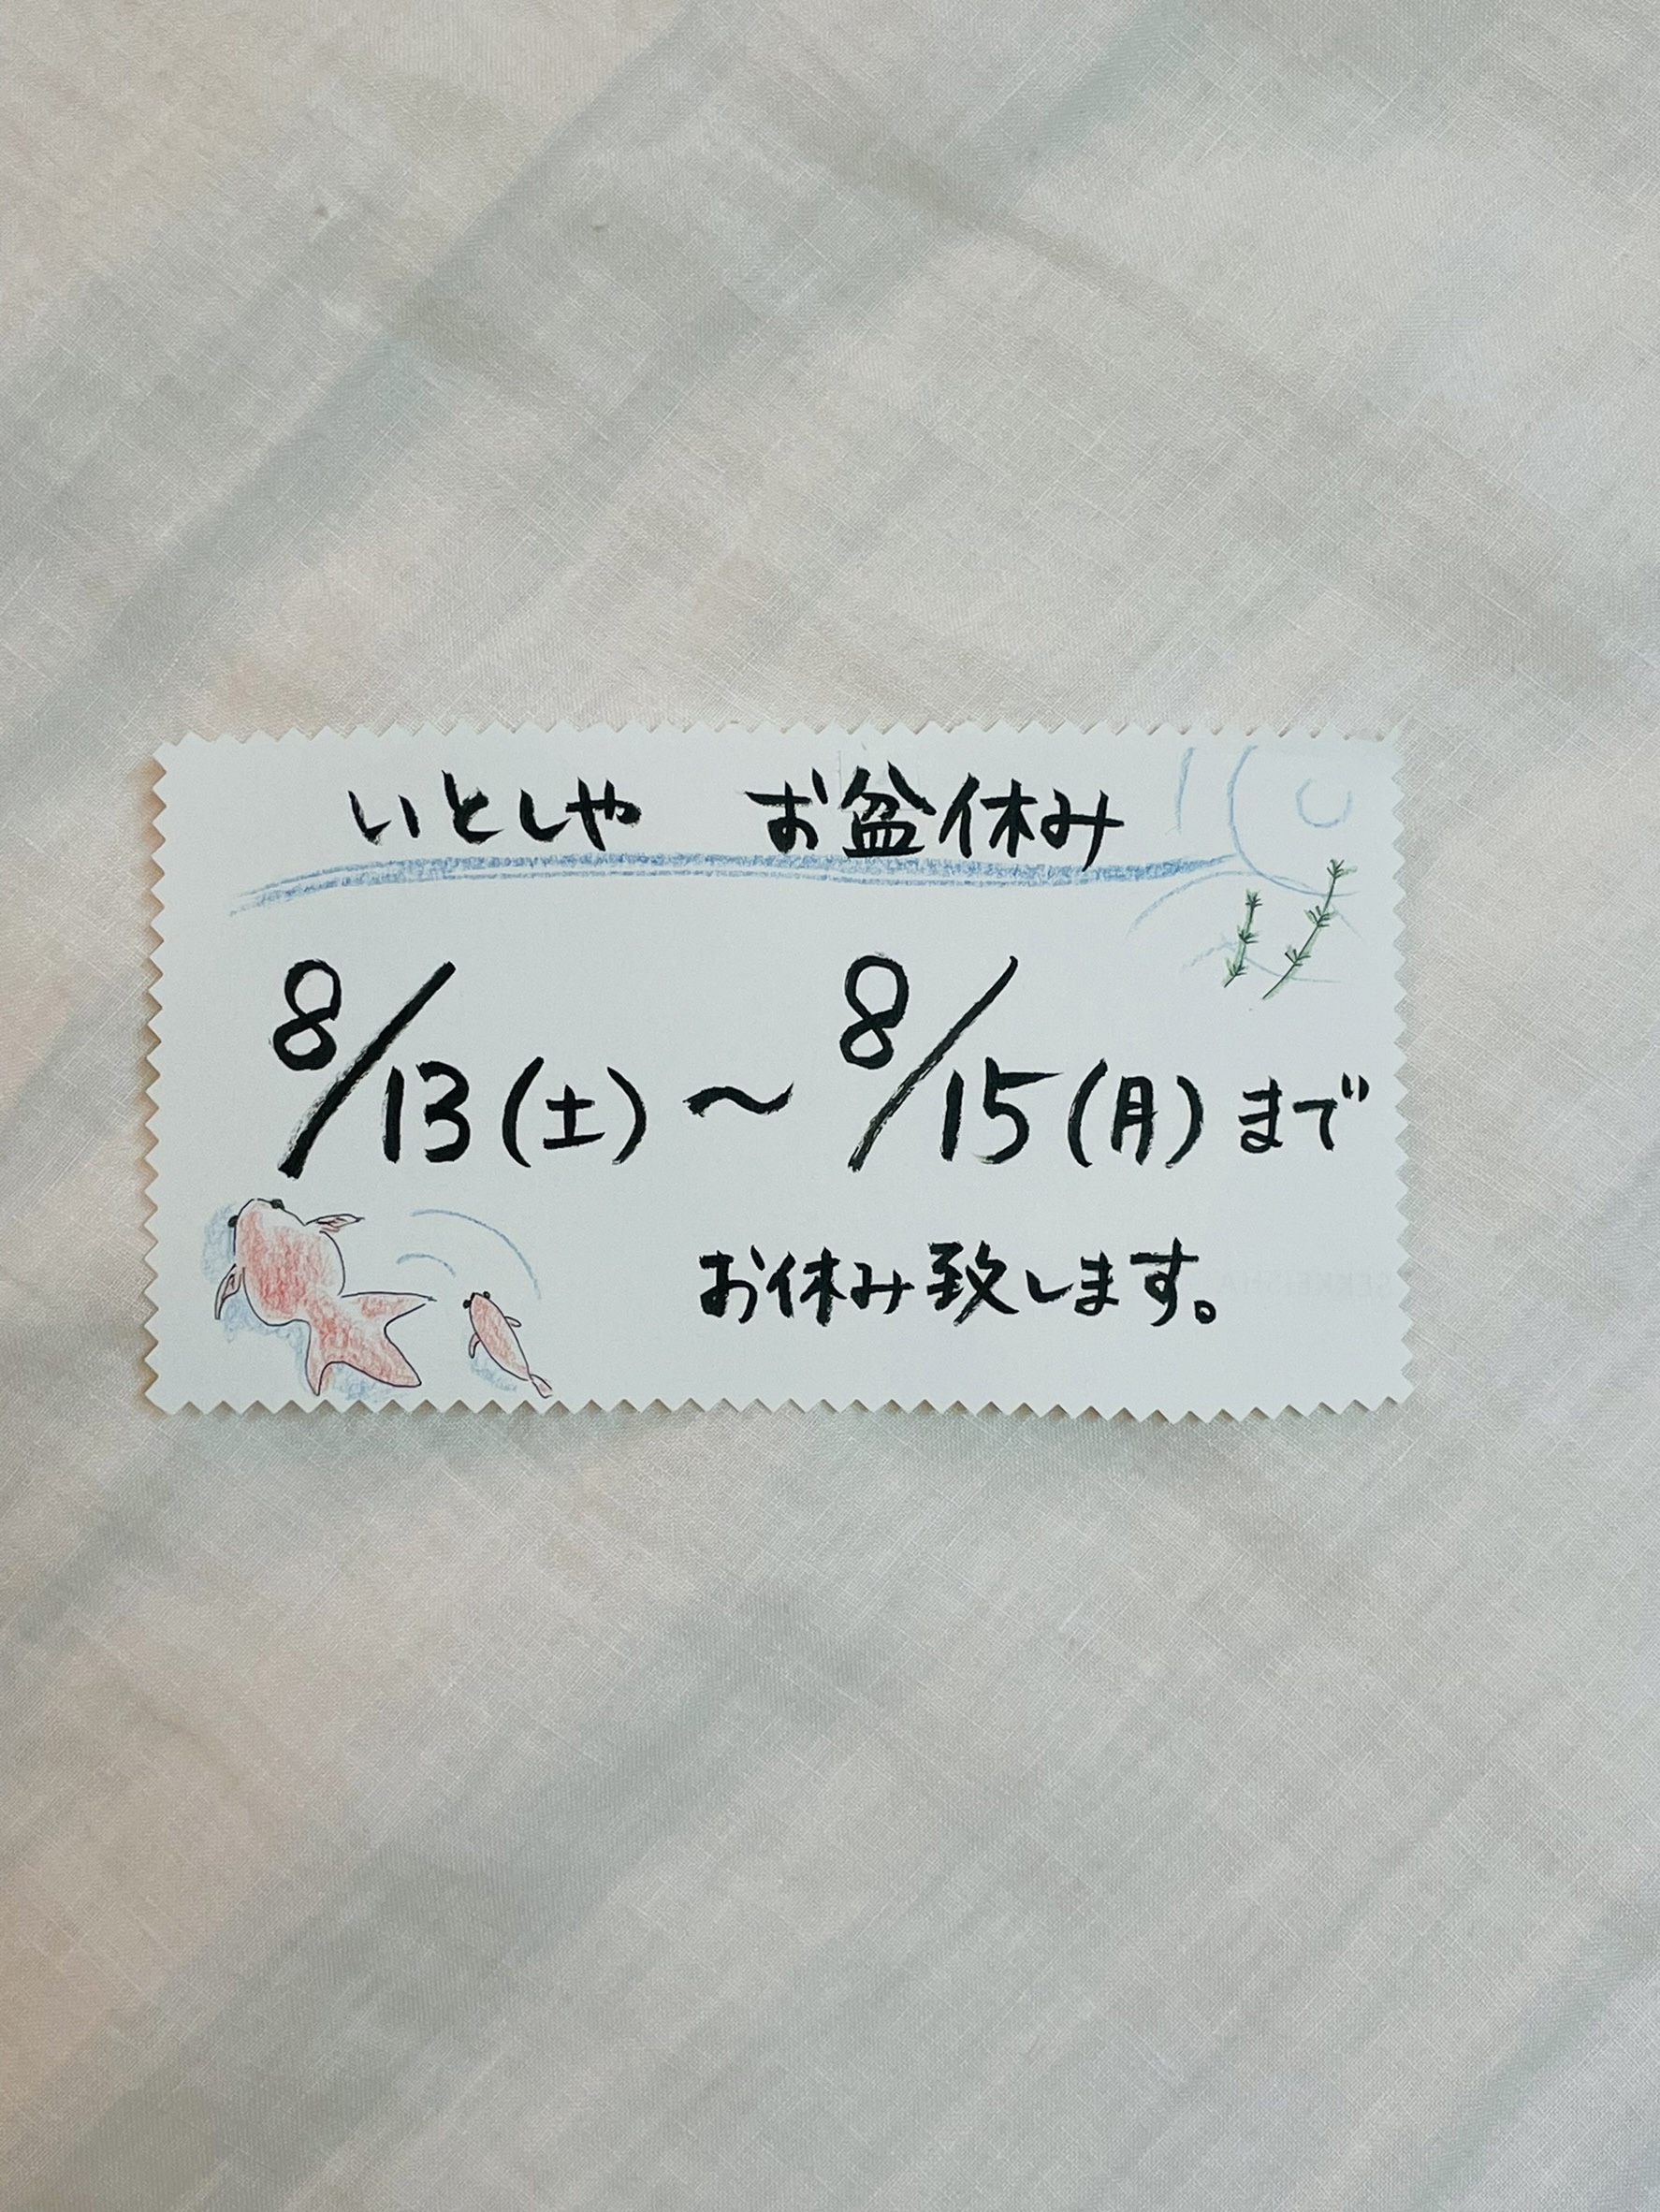 いとしや お盆休み
8/13(土)〜8/15(月)まで
お休み致します。